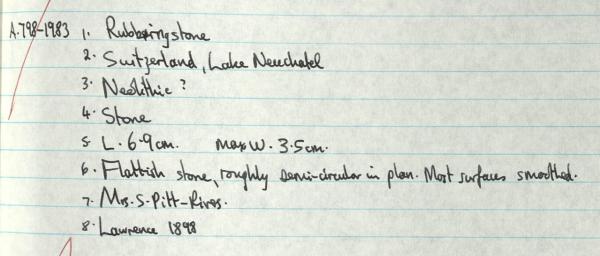 A.798-1983 1. Rubbering stone
2. Switzerland, Lake Neuchatel
3. Neolithic ?
4. Stone
5. L. 6.9cm. Max W. 3.5cm.
6. Flattish stone, roughly semi-circular in plan. Most surfaces smoothed.
7. Mrs. S. Pitt-Rivers.
8. Lawrence 1898